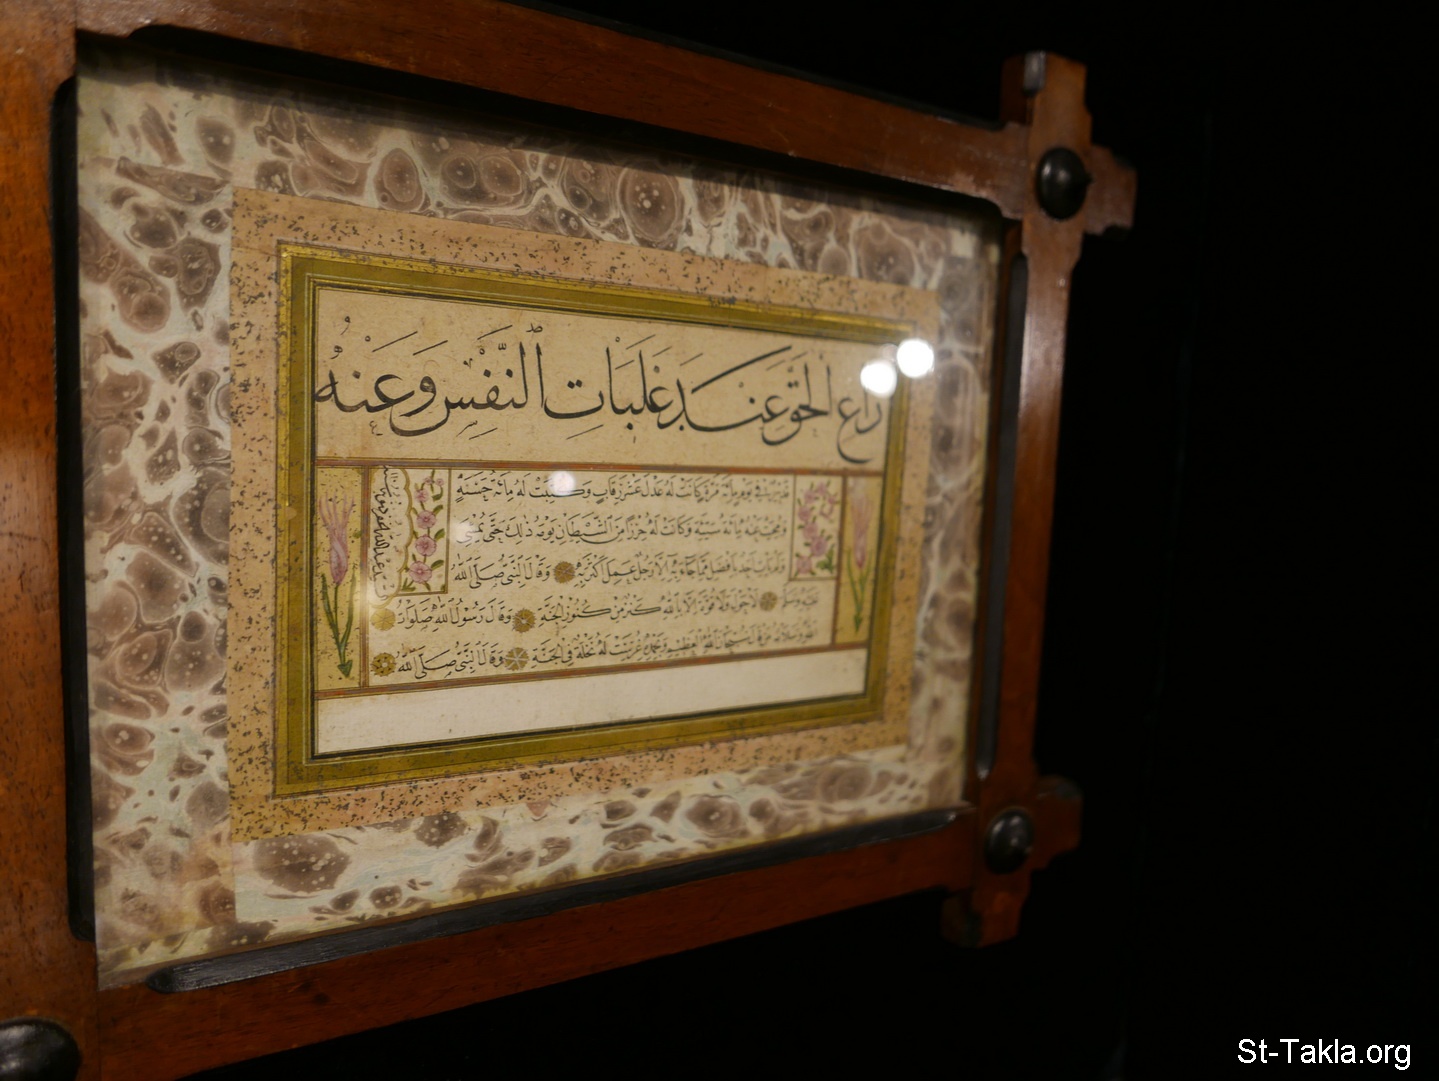 راع الحق عند غلبات النفس وعنه
في يوم مائة مرة كانت له عدل عشر رقاب وكتبت له مائة حسنة
ومحيت عنه مائة سيئة وكانت له حرزا من الشيطان يومه ذلك حتى يمسي
ولم يات احد بافضل مما جاء به الا رجل عمل اكثر منه وقال النبي صلى الله
عليه وسلم لا حول ولا قوة الا بالله كنز من كنوز الجنة وقال رسول الله صلوات
الله وسلامه من قال سبحان الله العظيم وبحمده غرست له نخلة في الجنة وقال النبي صلى الله
St-Takla.org